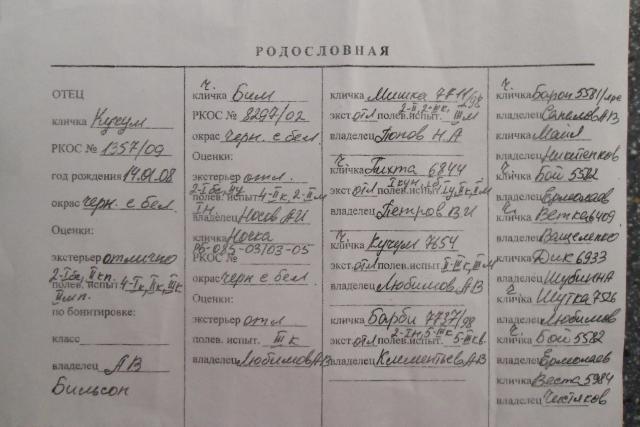 РОДОСЛОВНАЯ
ОТЕЦ
кличка Кучум
РКОС № 1357/09
год рождения 14.01.08
окрас черн. с бел.
Оценки:
экстерьер отлично
2-Iбе, IIкп.
полев. испыт 4-Iк, IIк, IIIк
IIмп.
по бонитировке:
класс
владелец АВ
Бильсон
Ч.
кличка Бим
РКОС № 8297/02
окрас черн. с бел.
Оценки:
экстерьер отл.
полев. испыт. 4-IIк, 2-IIм
Iн
владелец Носов А.И
кличка Носка
РБ-035-03/03-05
РКОС №
окрас черн с бел.
Оценки:
экстерьер отл
полев. испыт. IIIк
владелец Любимов АВ
Ч.
кличка Мишка 7811/98
2-II, 2-IIIк.
экст. отл полев. испыт. IIIм
владелец Попов Н А
Ч.
кличка Пихта 6844
экст. отл полев. испыт
владелец Петров В И
Ч.
кличка Кучум 7654
экст. отл полев. испыт II-IIIк, IIIм
владелец Любимов А В
Ч.
кличка Барби 7737/98
2-Iн, 5-IIIк.
экст. отл полев. испыт. 5-IIIкв.
владелец Клементьев А В
Ч.
кличка Барон 5581/
владелец Савелов АВ
кличка Майя
владелец Никитенков
Ч.
кличка Бой 5582
владелец Ермолаев
Ч.
кличка Ветка 6409
владелец Ващеленко
кличка Дик 6933
владелец Шубин НА
Ч.
кличка Шутка 7526
владелец Любимов
Ч.
кличка Бой 5582
владелец Ермолаев
кличка Веста 5984
владелец Чистяков